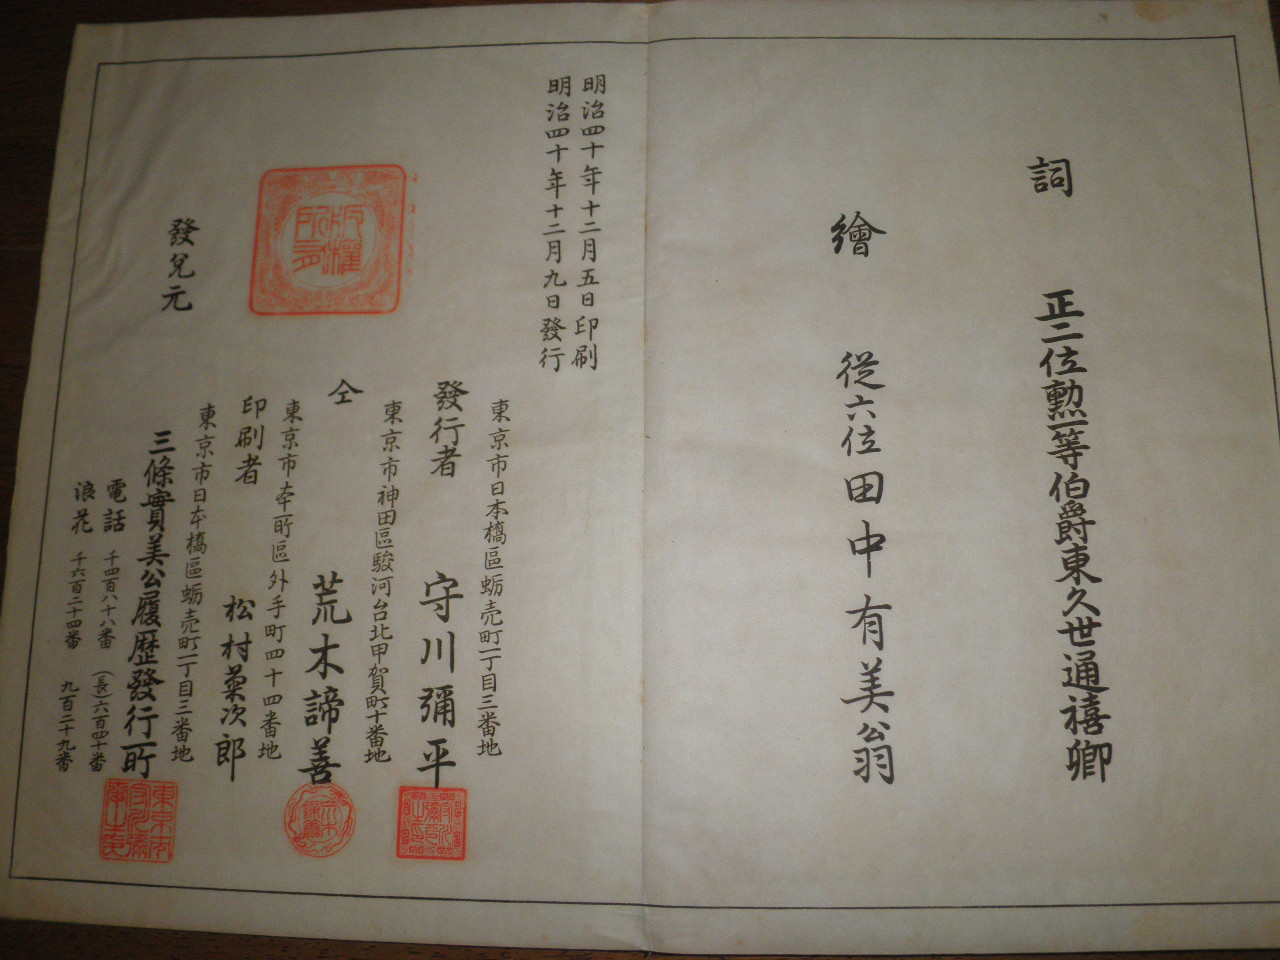 詞 正二位勲一等伯爵東久世通禧卿
繪 從六位田中有美翁
明治四十年十二月五日印刷
明治四十年十二月九日發行
東京市日本橋區蛎売町一丁目三番地
發行者 守川彌平
東京市神田區駿河台北甲賀町十番地
仝 荒木諦善
東京市本所區外手町四十四番地
印刷者 松村菊次郎
東京市日本橋區蛎売町一丁目三番地
發兌元 三條實美公履歴發行所
電話 千四百八十八番 (長)六百四十番
浪花 千六百二十四番 九百二十九番
版權所有